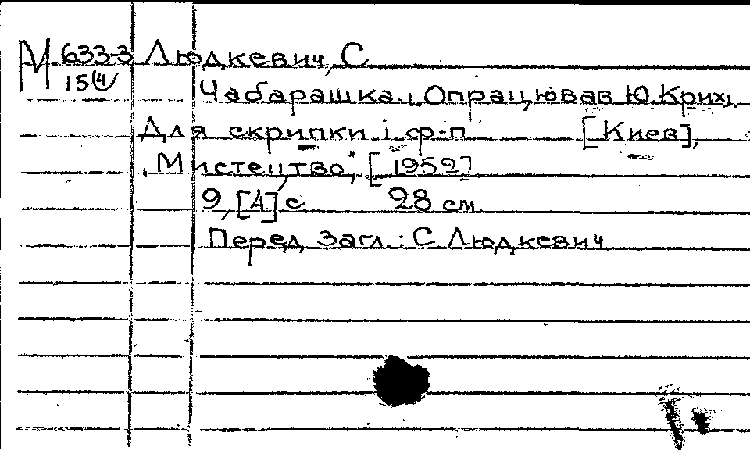 М 633-3 Людкевич, С.
15(4)
Чабарашка. Опрацював Ю. Крих.
Для скрипки і ф-п [Киев],
"Мистецтво", [1952]
9, [А] с 28 см.
Перед загл.: С. Людкевич